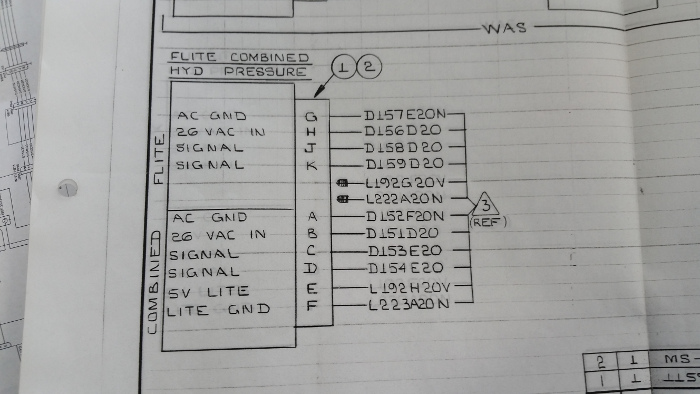 WAS
FLITE COMBINED
HYD PRESSURE
1 2
FLITE
AC GND G D157E20N
26 VAC IN H D156D20
SIGNAL J D158D20
SIGNAL K D159D20
L192G20V
L222A20N
3
(REF)
COMBINED
AC GND A D152F20N
26 VAC IN B D151D20
SIGNAL C D153E20
SIGNAL D D154E20
5V LITE E L192H20V
LITE GND F L223A20N
2 1 MS-
1 1 1159